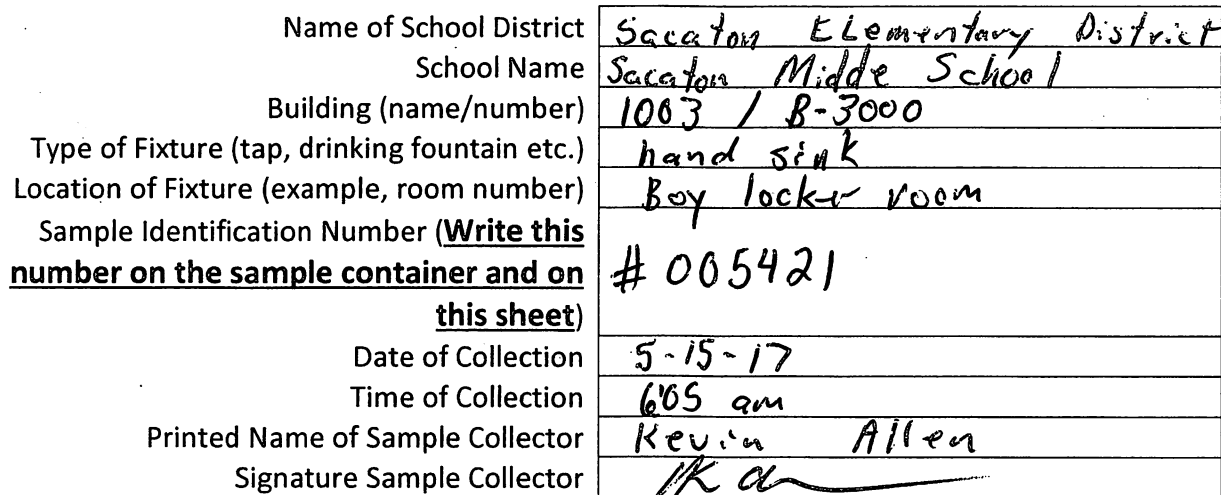 Name of School District Sacaton Elementary District
School Name Sacaton Midde School
Building (name/number) 1003 / B-3000
Type of Fixture (tap, drinking fountain etc.) hand sink
Location of Fixture (example, room number) Boy locker room
Sample Identification Number (Write this
number on the sample container and on # 005421
this sheet)
Date of Collection 5-15-17
Time of Collection 6:05 am
Printed Name of Sample Collector Kevin Allen
Signature Sample Collector